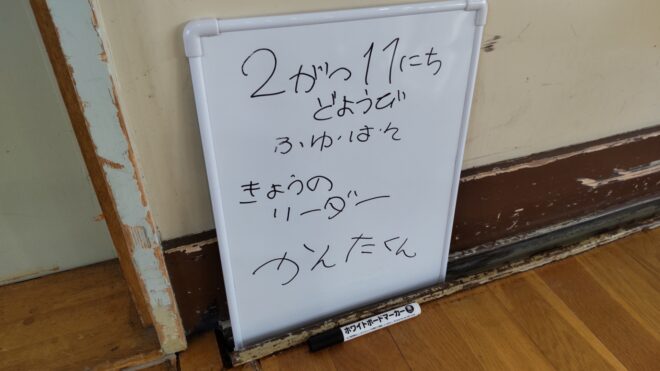 2がつ11にち
どようび
ふ・ゆ・は・そ
きょうの
リーダー
かんたくん
ホワイトボードマーカー